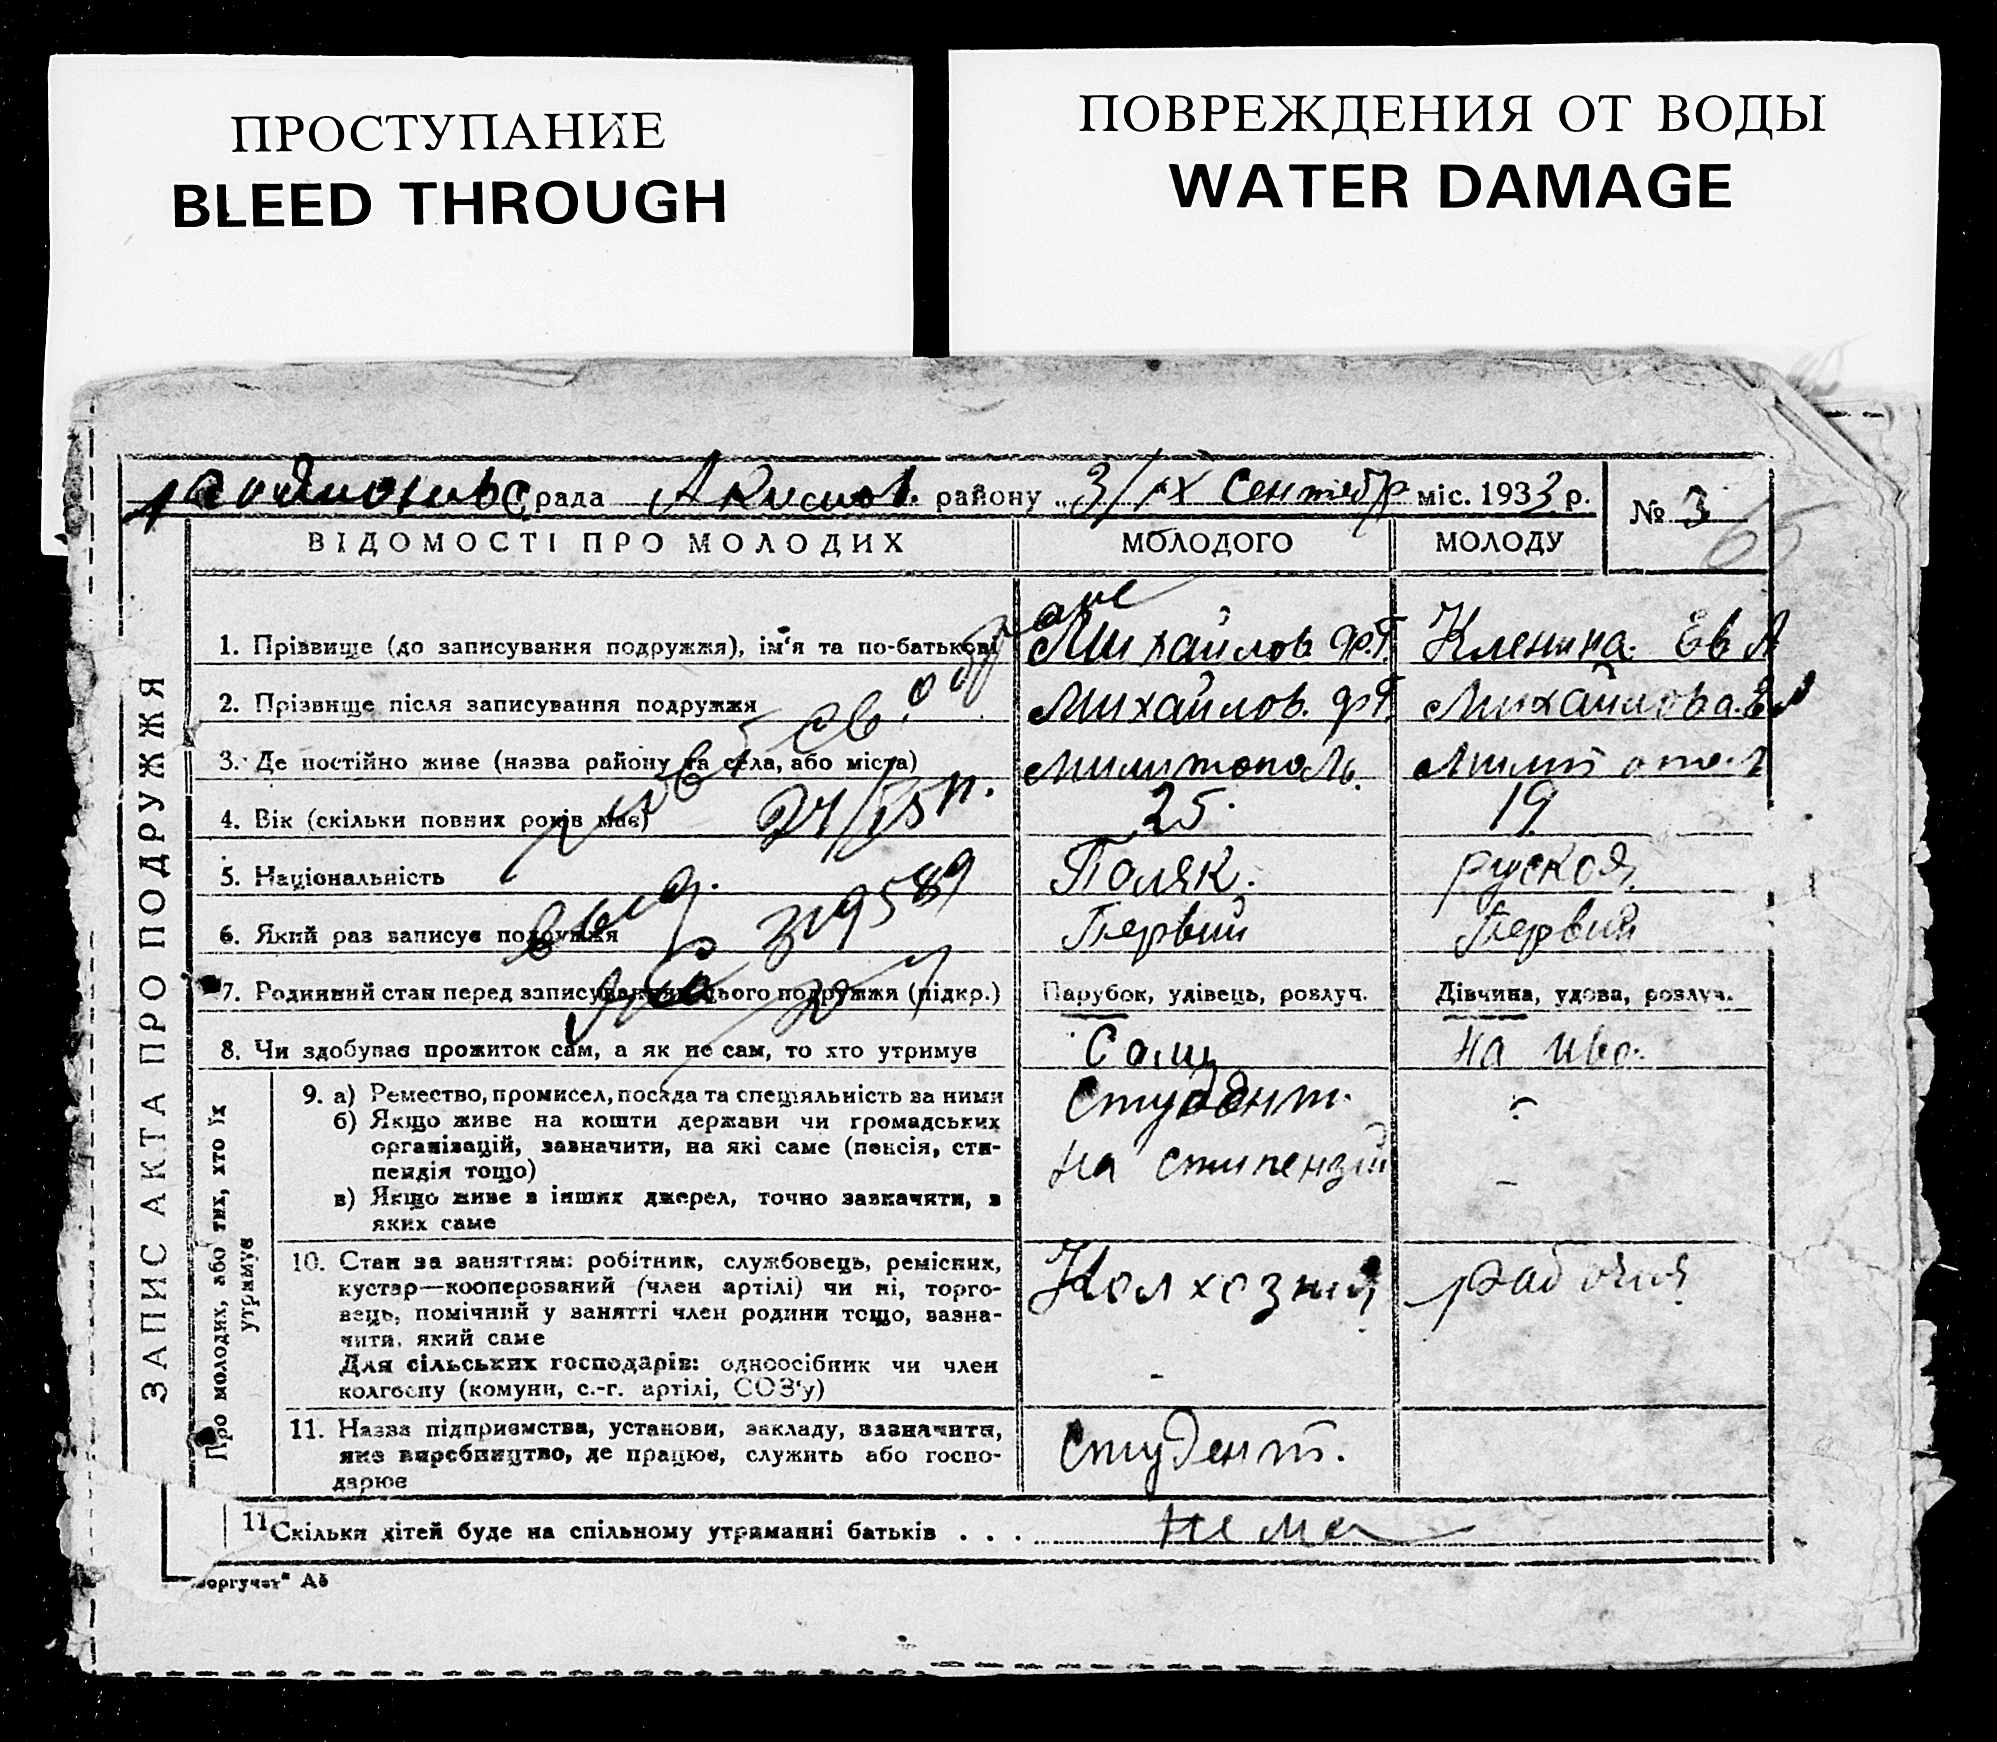 ПРОСТУПАНИЕ
BLEED THROUGH
ПОВРЕЖДЕНИЯ ОТ ВОДЫ
WATER DAMAGE
рада Акимов. району „3/IX Сентябр міс. 1933 р.
№ 3
ЗАПИС АКТА ПРО ПОДРУЖЖЯ
ВІДОМОСТІ ПРО МОЛОДИХ МОЛОДОГО МОЛОДУ
1. Прізвище (до записування подружжя), ім'я та по-батькові Михайлов. Ф.Г. Кленина Ев А
2. Прізвище після записування подружжя Михайлов. Ф.Г. Михайлова.
3. Де постійно живе (назва району та села, або міста) Милитополь.
4. Вік (скільки повних років має) 25. 19
5. Національність Поляк. руской
6. Який раз записує подружжя Первий Первий
7. Родинний стан перед записуванням цього подружжя (підкр.) Парубок, удівець, розлуч. Дівчина, удова, розлуч.
8. Чи здобував прожиток сам, а як не сам, то хто утримує Сам на
Про молодих, або тих, хто їх
утримує
9. а) Ремество, промисел, посада та спеціяльність за ними Студент.
б) Якщо живе на кошти держави чи громадських
організацій, зазначити, на які саме (пенсія, сти-
пендія тощо) на стипензии
в) Якщо живе з інших джерел, точно зазначити, з
яких саме
10. Стан за заняттям: робітник, службовець, ремісник,
кустар—кооперований (член артілі) чи ні, торго-
вець, помічний у занятті член родини тощо, зазна-
чити, який саме
Для сільських господарів: одноосібник чи член
колгоспу (комуни, с.-г. артілі, СОЗ'у)
Колхозний рабочий
11. Назва підприємства, установи, закладу, зазначити,
яке виробництво, де працює, служить або госпо-
дарює
Студент.
11 Скільки дітей буде на спільному утриманні батьків . . . нема
св. о браке
24/
выд.
319589